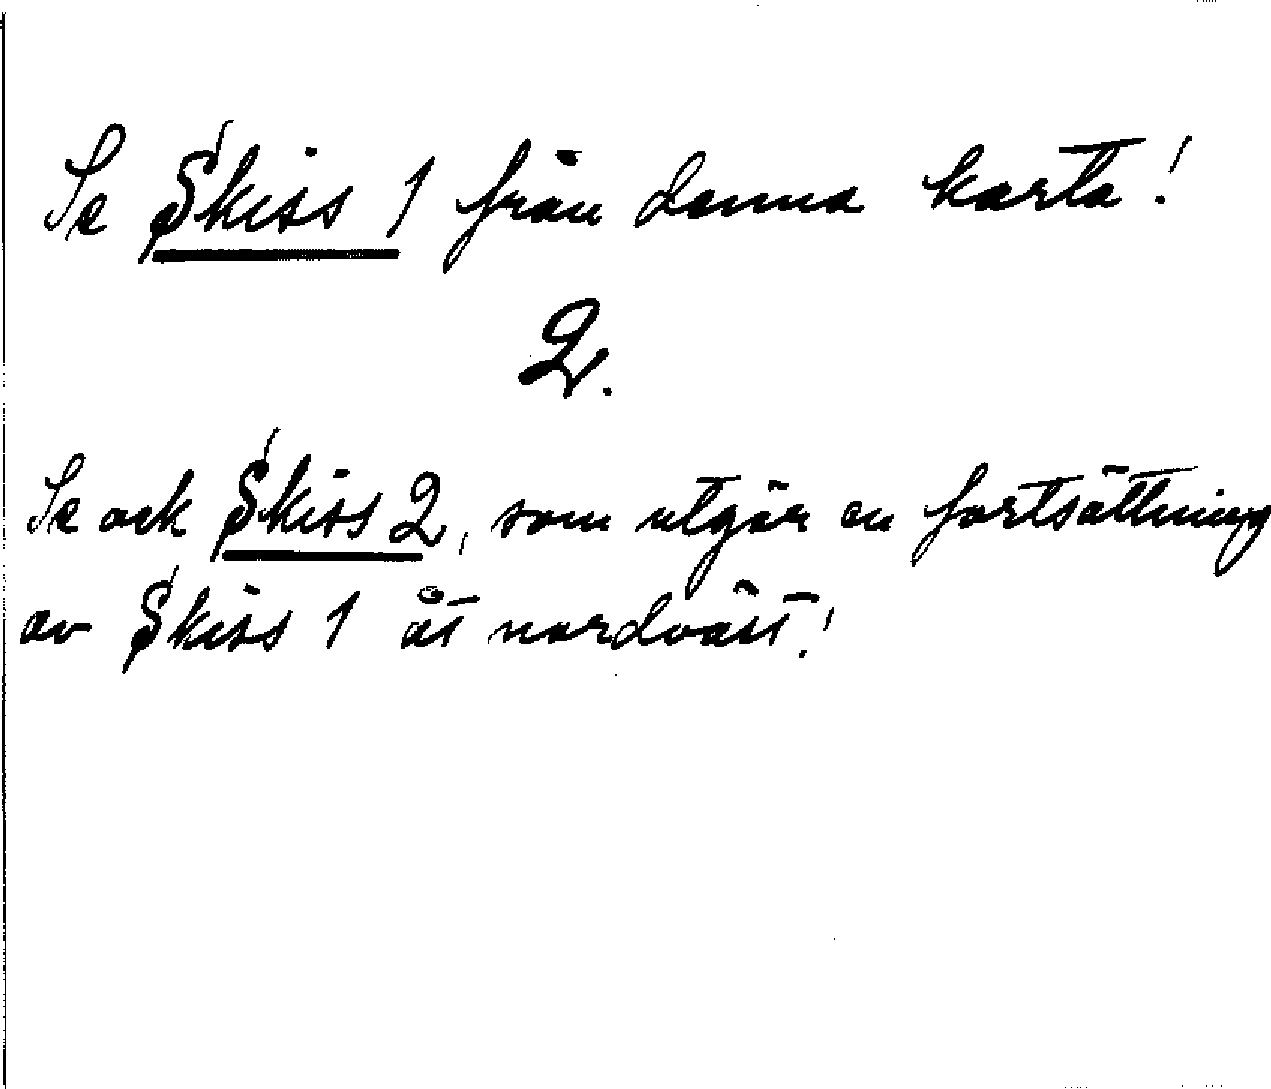 Se Skiss 1 från denna karta!
2.
Se ock Skiss 2, som utgör en fortsättning
av Skiss 1 åt nordväst!